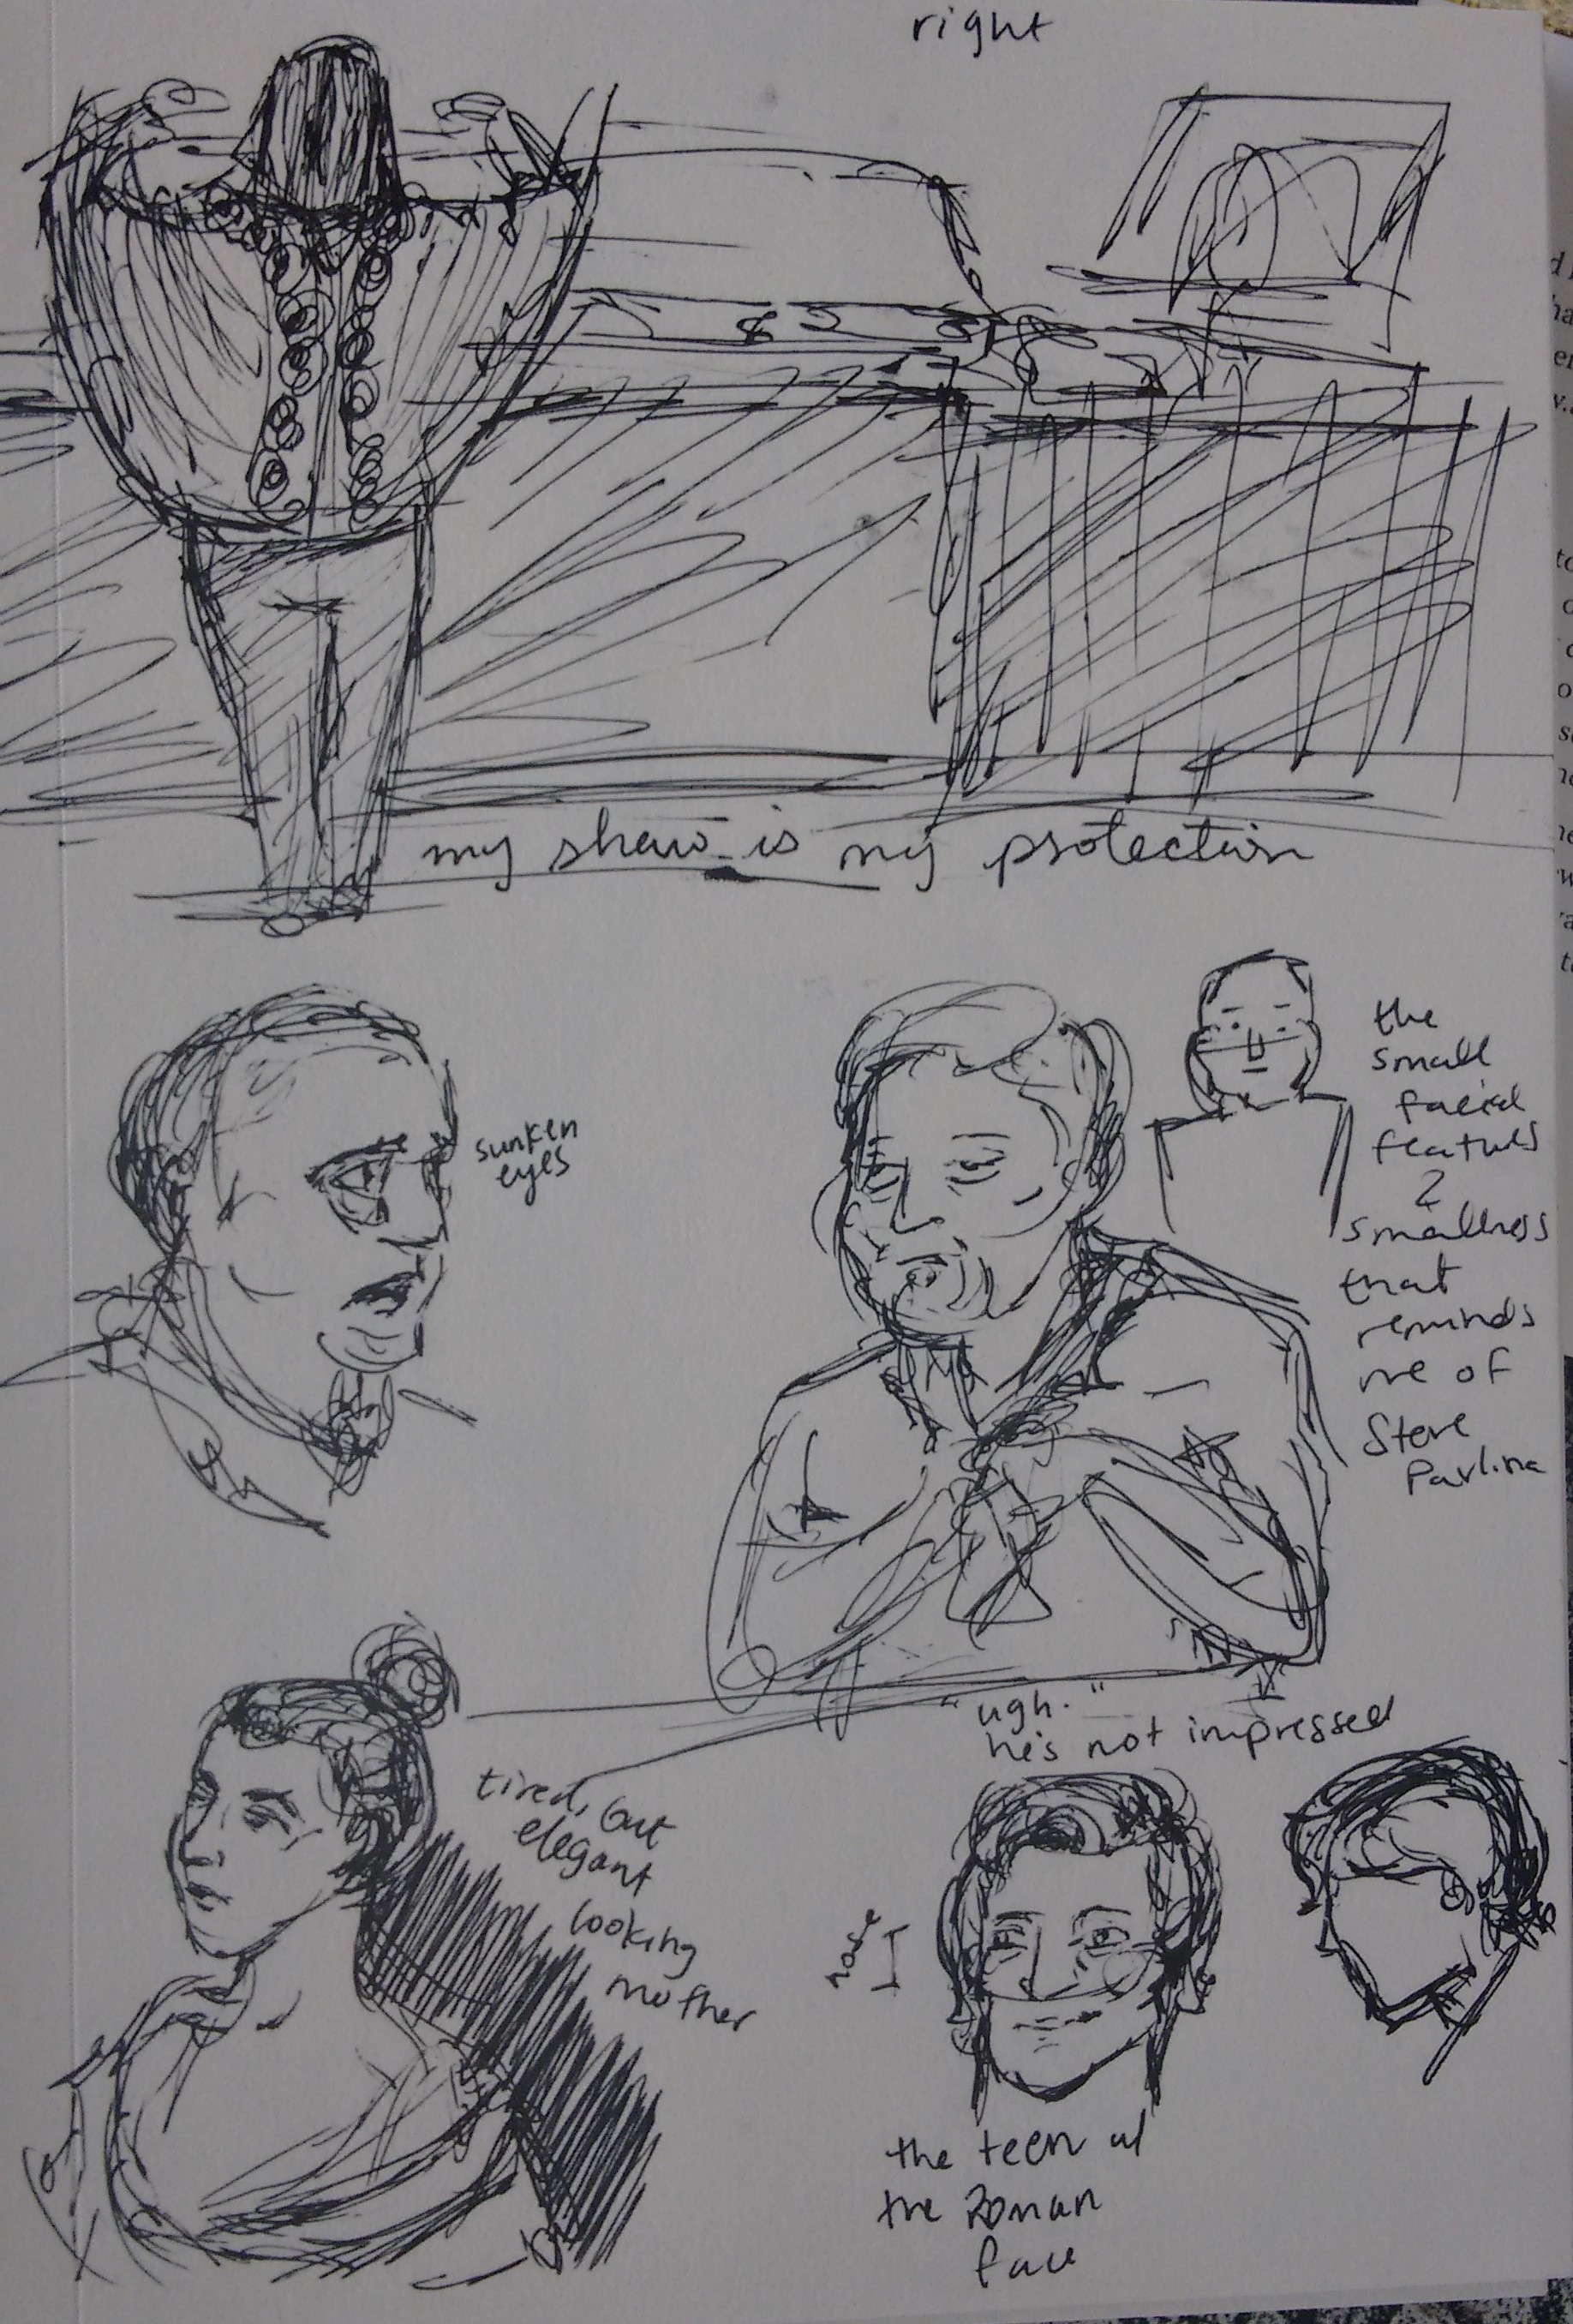 right
my shawl is my protection
sunken
eyes
the
small
facial
features
2
smallness
that
reminds
me of
Steve
Pavlina
"ugh."
he's not impressed
tired, but
elegant
looking
mother
nose
the teen w/
the Roman
face